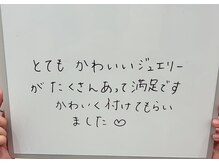 とても かわいいジュエリー
がたくさんあって満足です
かわいく付けてもらい
ました♡